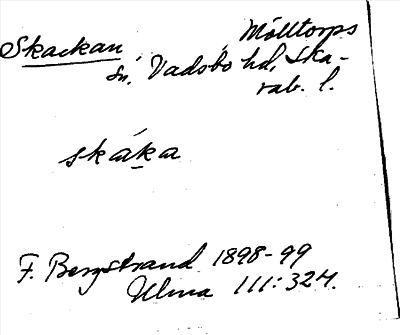 Skackan Mölltorps
sn. Vadsbo hd, Ska-
rab. l.
skáka
F. Bergstrand 1898-99
Ulma 111:324.